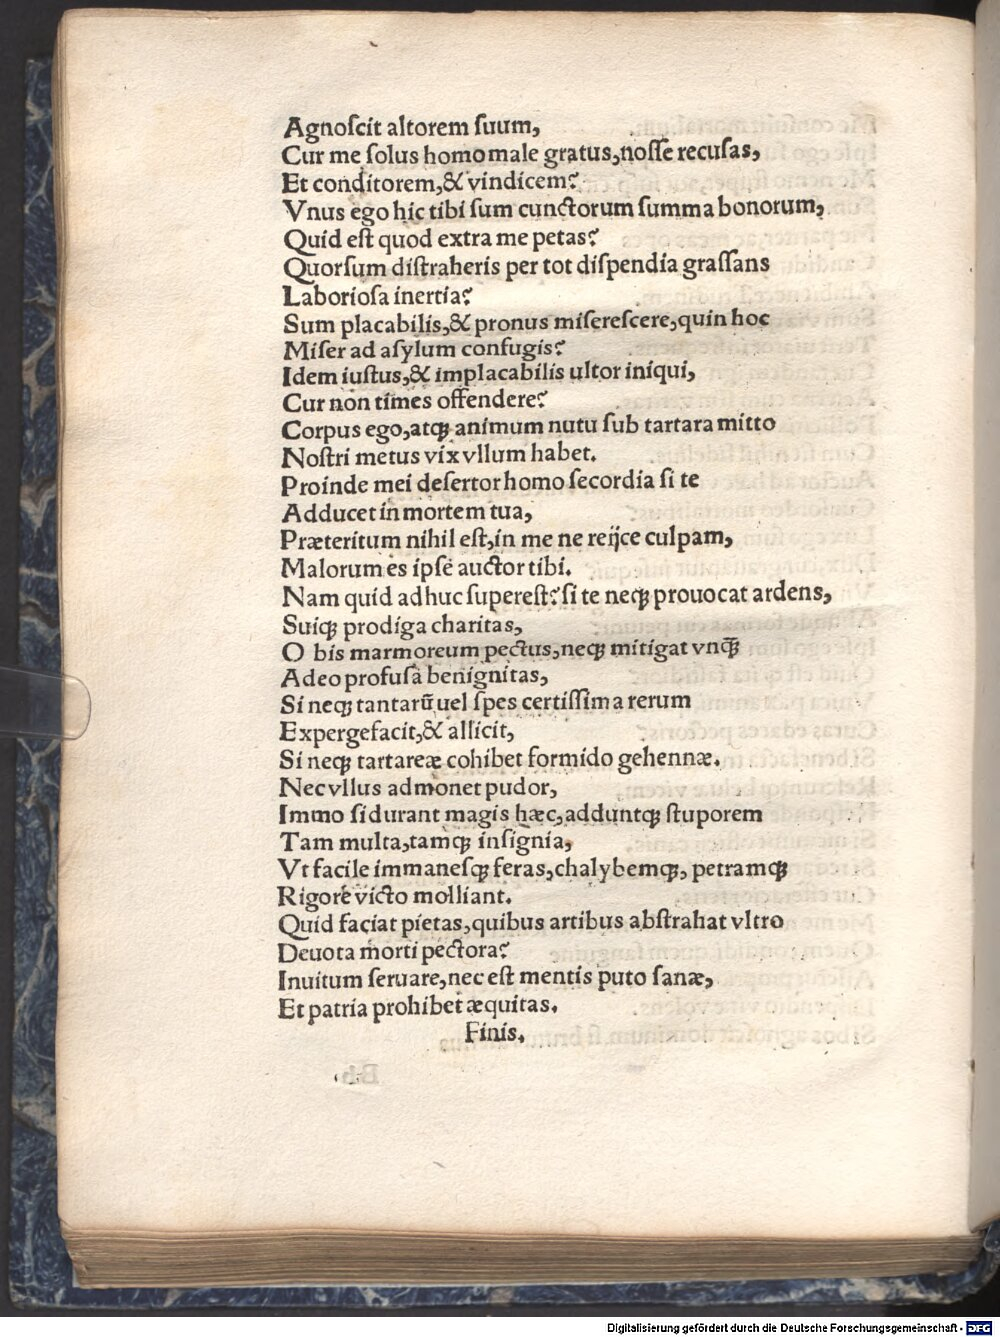 Agnoſcit altorem ſuum,
Cur me ſolus homo male gratus,noſſe recuſas,
Et conditorem,& vindicem?
Vnus ego hic tibi ſum cunctorum ſumma bonorum,
Quid eſt quod extra me petas?
Quorſum diſtraheris per tot diſpendia graſſans
Laborioſa inertia?
Sum placabilis,& pronus miſereſcere,quin hoc
Miſer ad aſylum confugis?
Idem iuſtus,& implacabilis ultor iniqui,
Cur non times offendere?
Corpus ego,atqꝫ animum nutu ſub tartara mitto
Noſtri metus vix vllum habet.
Proinde mei deſertor homo ſecordia ſi te
Adducet in mortem tua,
Præteritum nihil eſt,in me ne reijce culpam,
Malorum es ipſe auctor tibi.
Nam quid adhuc ſupereſt?ſi te neqꝫ prouocat ardens,
Suiqꝫ prodiga charitas,
O bis marmoreum pectus,neqꝫ mitigat vnqꝫ̃
Adeo profuſa benignitas,
Si neqꝫ tantarũ uel ſpes certiſſima rerum
Expergefacit,& allicit,
Si neqꝫ tartareæ cohibet formido gehennæ.
Nec vllus admonet pudor,
Immo ſi durant magis hæc,adduntqꝫ ſtuporem
Tam multa,tamqꝫ inſignia,
Vt facile immaneſqꝫ feras,chalybemqꝫ, petramqꝫ
Rigore victo molliant.
Quid faciat pietas,quibus artibus abſtrahat vltro
Deuota morti pectora?
Inuitum ſeruare,nec eſt mentis puto ſanæ,
Et patria prohibet æquitas.
Finis.
Digitalisierung gefördert durch die Deutsche Forschungsgemeinschaft - DFG